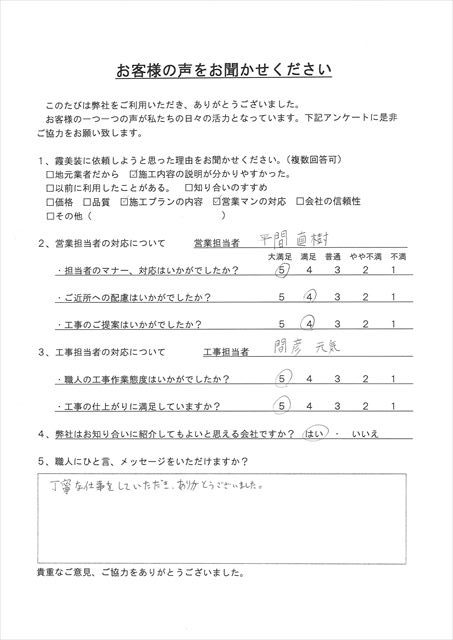 お客様の声をお聞かせください
このたびは弊社をご利用いただき、ありがとうございました。
お客様の一つ一つの声が私たちの日々の活力となっています。下記アンケートに是非
ご協力をお願い致します。
1、霞美装に依頼しようと思った理由をお聞かせください。（複数回答可）
□地元業者だから ☑施工内容の説明が分かりやすかった。
□以前に利用したことがある。 □知り合いのすすめ
□価格 □品質 ☑施工プランの内容 ☑営業マンの対応 □会社の信頼性
□その他（ ）
2、営業担当者の対応について 営業担当者 平間 直樹
大満足 満足 普通 やや不満 不満
・担当者のマナー、対応はいかがでしたか？ 5 4 3 2 1
・ご近所への配慮はいかがでしたか？ 5 4 3 2 1
・工事のご提案はいかがでしたか？ 5 4 3 2 1
3、工事担当者の対応について 工事担当者 間彦 元気
・職人の工事作業態度はいかがでしたか？ 5 4 3 2 1
・工事の仕上がりに満足していますか？ 5 4 3 2 1
4、弊社はお知り合いに紹介してもよいと思える会社ですか？ はい ・ いいえ
5、職人にひと言、メッセージをいただけますか？
丁寧な仕事をしていただき、ありがとうございました。
貴重なご意見、ご協力をありがとうございました。